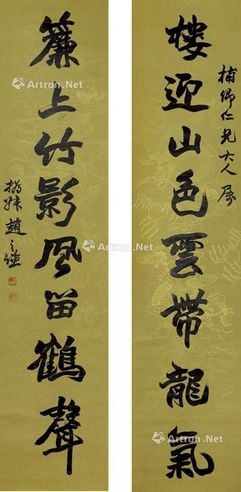 樓迎山色雲帶龍氣
補卿仁兄大人屬
簾上竹影風留鶴聲
撝叔趙之謙
Artron.Net
Artron.Net
Artron.Net
Artron.Net